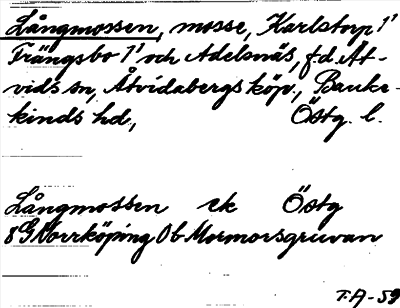 Långmossen, mosse, Karlstorp 1¹
Trängsbo 1¹ och Adelsnäs, f.d. Åt-
vids sn, Åtvidabergs köp., Banke-
kinds hd, Östg. l.
Långmossen ek Östg
8G Norrköping Ob Mormorsgruvan
T.A-59